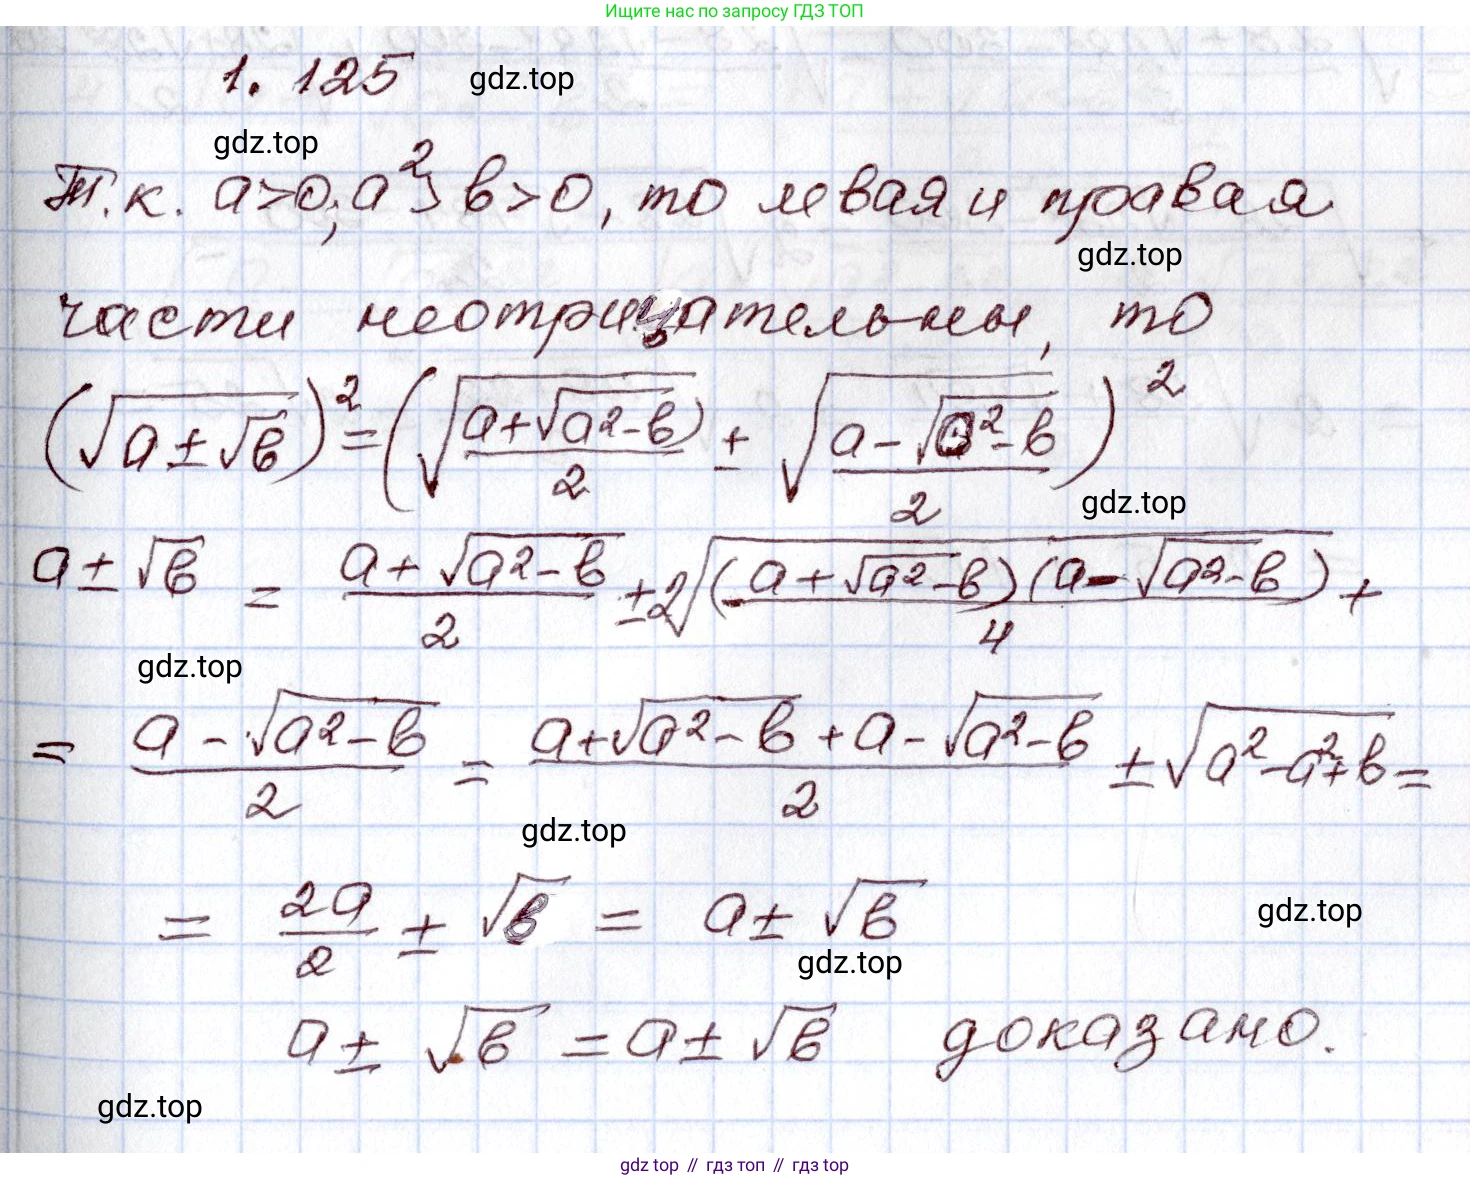 Ищите нас по запросу ГДЗ ТОП
1.125 gdz.top
gdz.top
Т.к. a>0, a²>b>0, то левая и правая
gdz.top
части неотрицательны, то
(√(a±√b))² = (√((a+√(a²-b))/2) ± √((a-√(a²-b))/2))²
gdz.top
a±√b = (a+√(a²-b))/2 ±2√((a+√(a²-b))(a-√(a²-b))/4) +
gdz.top
= (a-√(a²-b))/2 = (a+√(a²-b)+a-√(a²-b))/2 ± √(a²-a²+b) =
gdz.top
= 2a/2 ± √b = a±√b
gdz.top
gdz.top
a±√b = a±√b доказано.
gdz.top
gdz top // гдз топ // gdz top